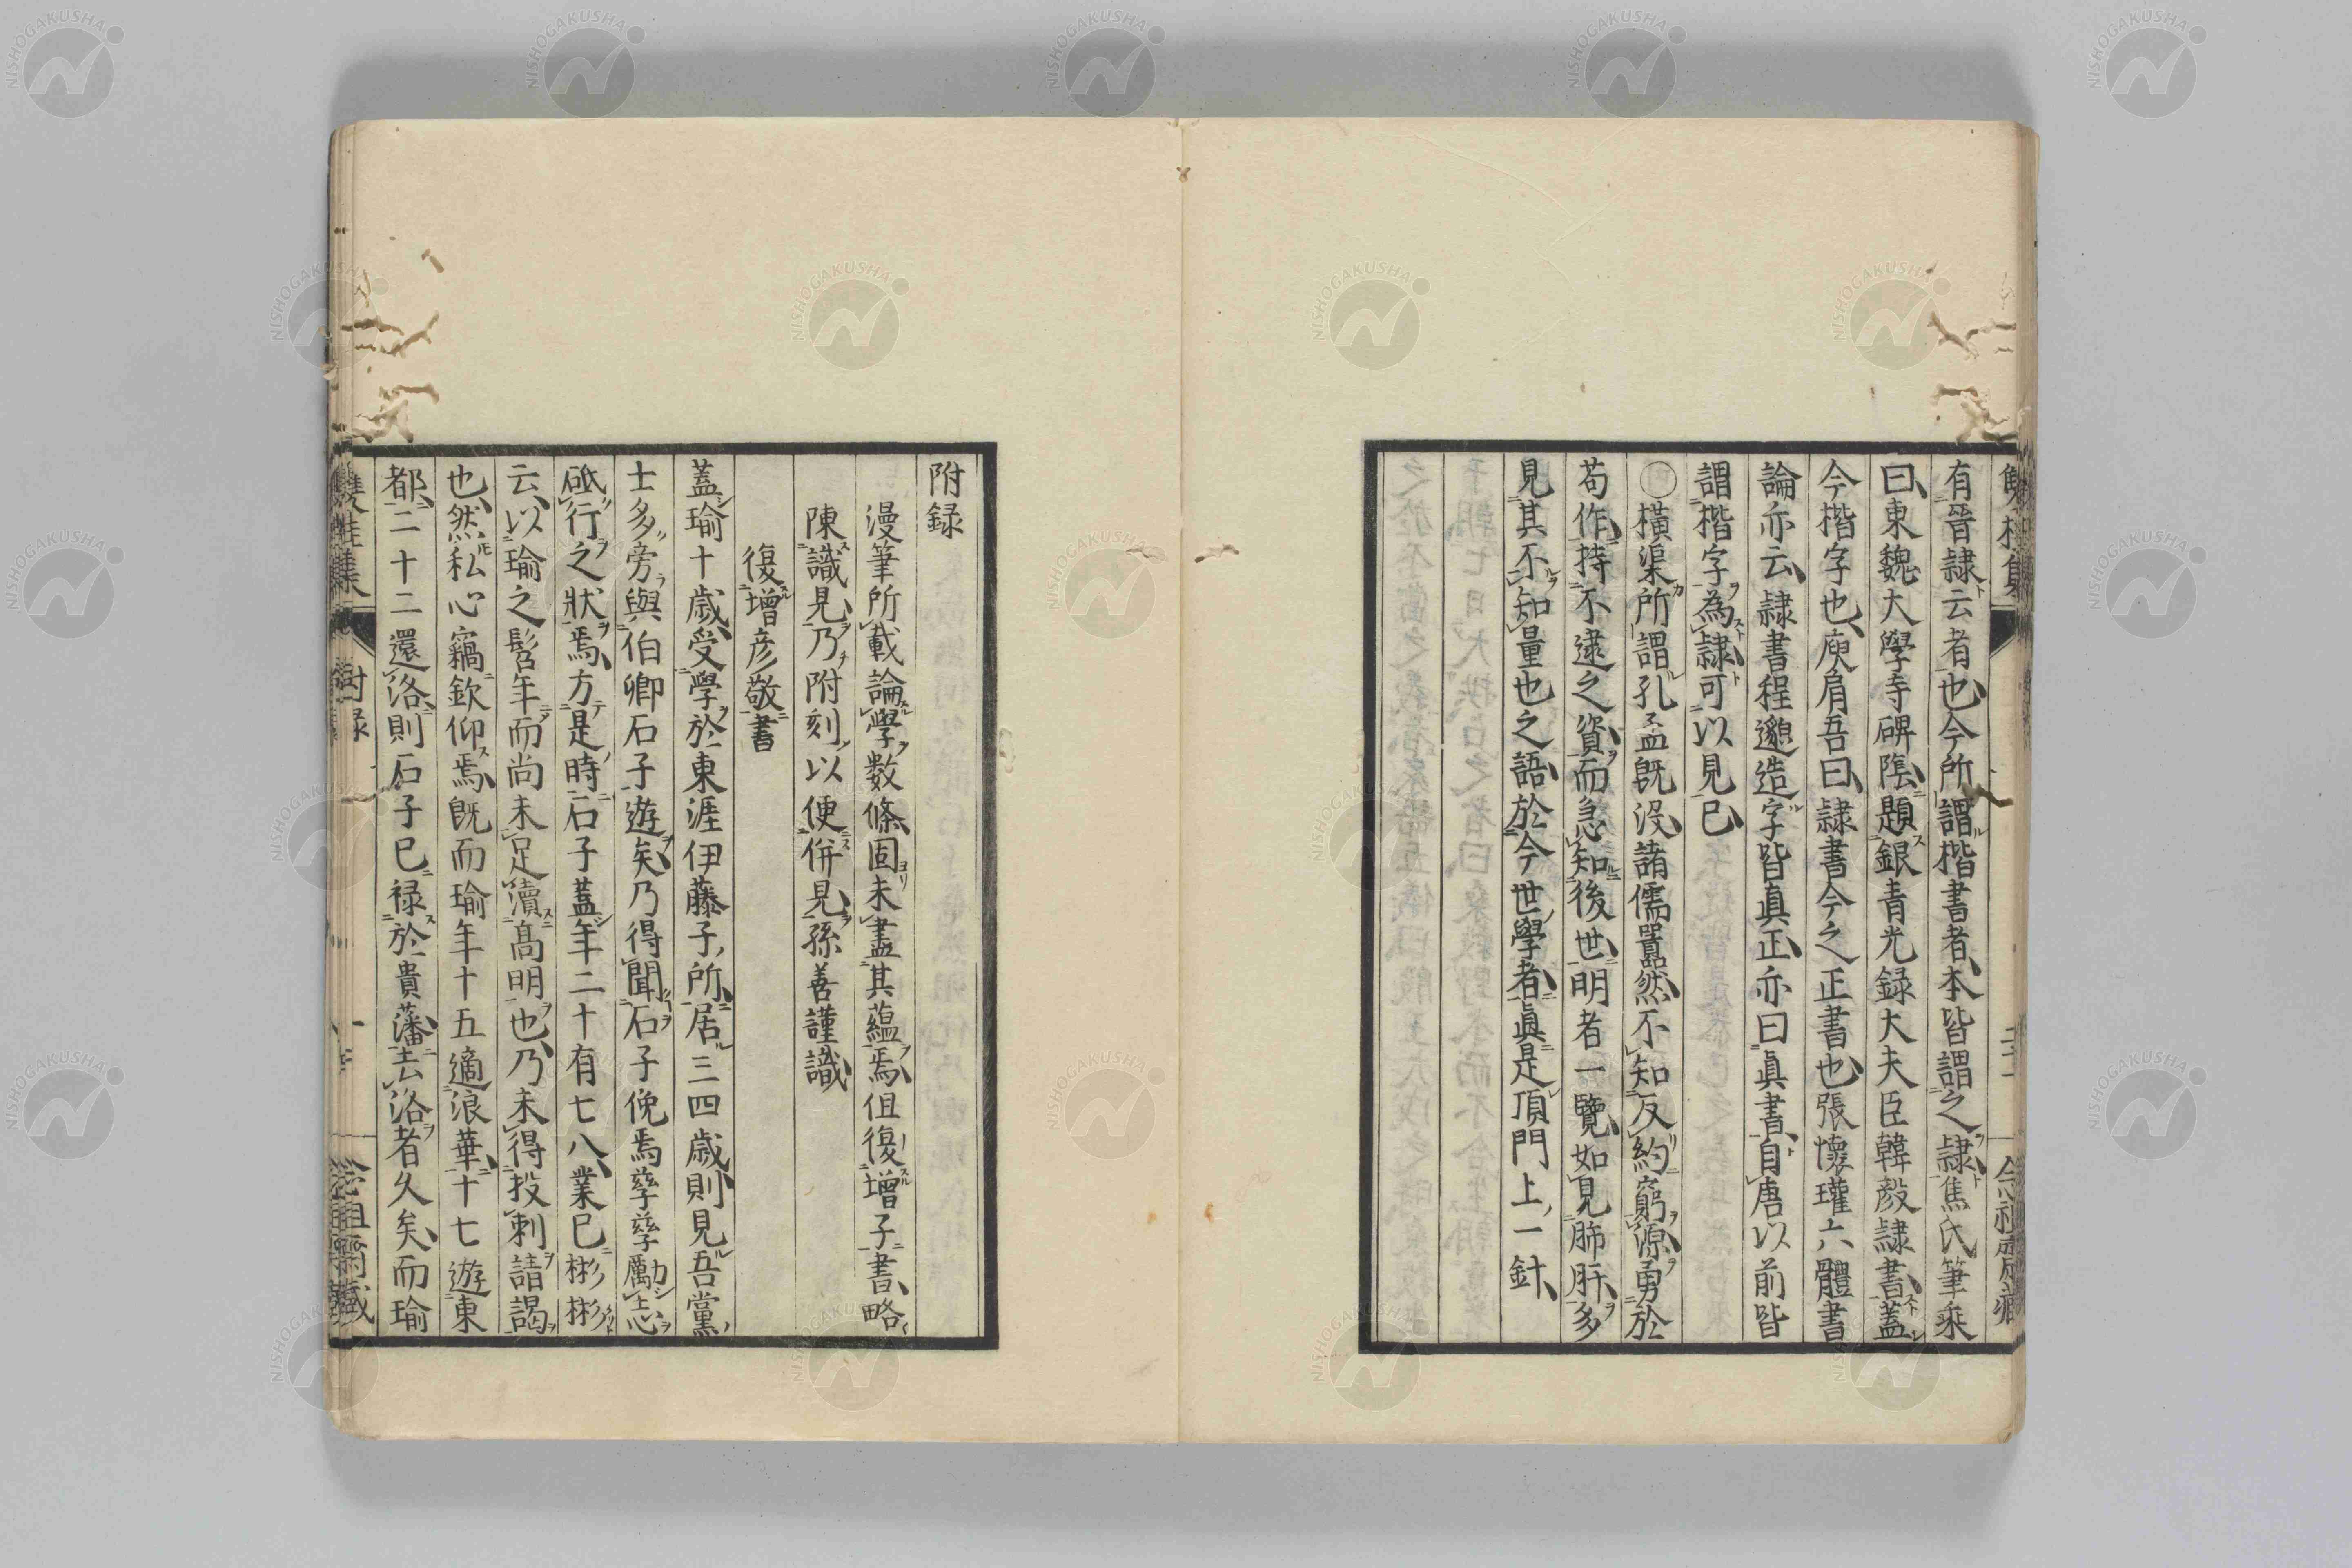 有晉隷云者也今所謂楷書者本皆謂之隷焦氏筆乘
曰東魏大學寺碑陰題銀青光録大夫臣韓毅隷書蓋
今楷字也庾肩吾曰隷書今之正書也張懷瓘六體書
論亦云隷書程邈造字皆真正亦曰眞書自唐以前皆
謂楷字為隷可以見已
〇橫渠所謂孔孟既没諸儒嚚然不知反約窮源勇於
苟作持不逮之資而急知後世明者一覽如見肺肝多
見其不知量也之語於今世學者眞是頂門上一針
附録
漫筆所載論學數條固未盡其蘊焉但復增子書略
陳識見乃附刻以便併見孫善謹識
復增彦敬書
蓋瑜十歳受學於東涯伊藤子所居三四歳則見吾黨
士多旁與伯卿石子遊矣乃得聞石子俛焉孳孳勵志
砥行之狀焉方是時石子蓋年二十有七八業已彬彬
云以瑜之髫年而尚未足瀆髙明也乃未得投刺請謁
也然私心竊欽仰焉既而瑜年十五適浪華十七遊東
都二十二還洛則石子已禄於貴藩去洛者久矣而瑜
附録